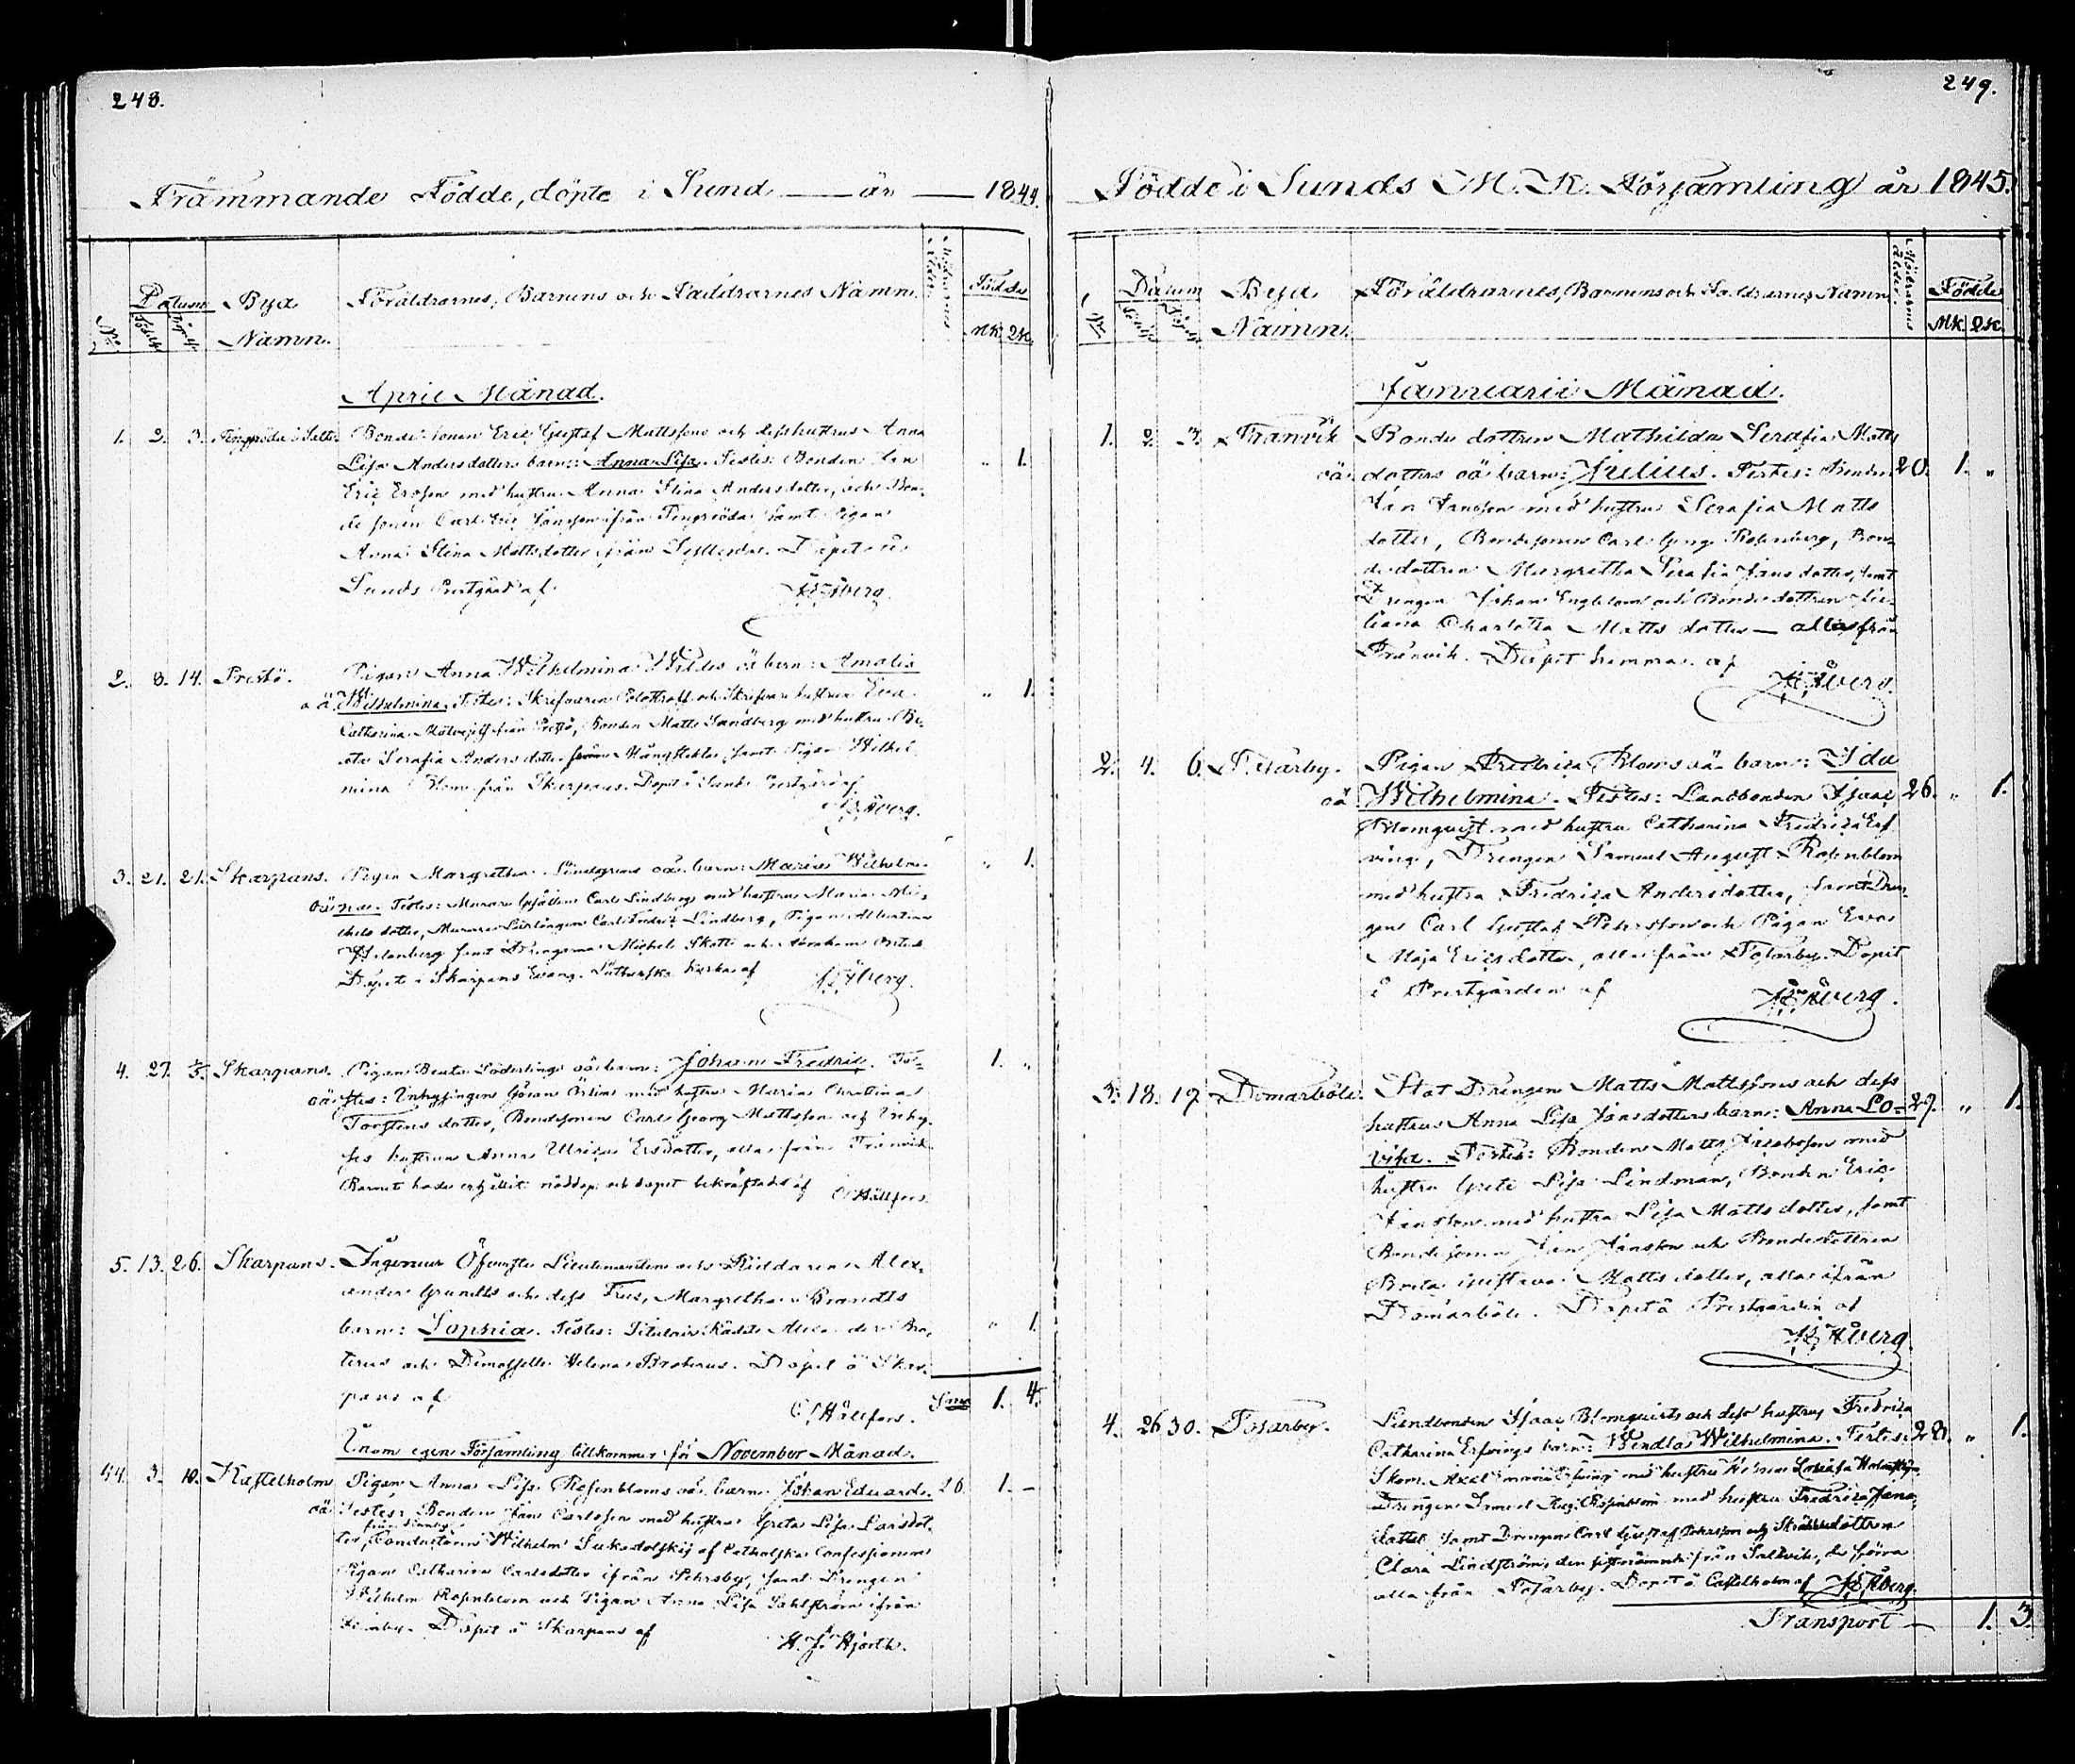 248.
Främmande Födde, döpte i Sund — år — 1844.
No
Datum
Födelse
Döpelse
Bya
Namn.
Föräldrarnes, Barnens och Faddrarnes Namn.
Modrarnes ålder.
Födde
Mk. Qk.
April Månad.
1. 2. 3. Bonde sonen Eric Gustaf Mattssons och dess hustrus Anna
Lisa Andersdotters barn: Anna Lisa. Testes: Bonden Jan „ 1.
Eric Ersson med hustru Anna Stina Andersdotter, och Bon-
de sonen Carl Eric Jansson ifrån Tingsöda samt Pigan
Anna Stina Mattsdotter från Döpt å
Sunds Prestgård af Åberg.
2. 8. 14. Prestö. Pigan Anna Wilhelmina Wildes oä barn: Amalia
oä Wilhelmina. Testes: Skrifvaren och Skrifvare hustrun Eva „ 1.
Catharina från Prestö, Bonden Matts Sandberg med hustru Be-
ata Serafia Andersdotter från Mångstekta, samt Pigan Wilhel-
mina Blom från Skarpans. Döpt i Sunds Prestgård af
Åberg.
3. 21. 21. Skarpans. Pigan Margretha Lindgrens oä barn: Maria Wilhelmi-
oä na. Testes: Murare Gesällen Carl Lindberg med hustrun Maria Mi- „ 1.
chels dotter, Murare Lärlingen Carl Fredric Lindberg, Pigan Albertina
samt Drengarna Michel Skott och Abraham
Döpt i Skarpans Evang. Lutherska kyrka af Åberg.
4. 27. 3/5. Skarpans. Pigan Beata Söderlings oä barn: Johan Fredric. Te- 1. „
oä stes: Inhysingen Göran Örblom med hustru Maria Christina
Torstens dotter, Bondsonen Carl Georg Mattsson och Inhy-
ses hustrun Anna Ulrica Ersdotter, alla från Tranvik
Barnet hade erhållit nöddop och dopet bekräftades af O. Hällfors.
5. 13. 26. Skarpans. Ingenieur Öfverste Lieutenanten och Riddaren Alex-
ander Grundts och dess Frus, Margretha Brandts
barn: Sophia. Testes: Titulair Rådet Alexander Bro- „ 1.
terus och Demoiselle Helena Broterus. Döpt å Skar-
pans af O. Hällfors. Sma 1. 4.
Inom egen Församling tillkommer för November Månad.
44. 3. 10. Kastelholm Pigan Anna Lisa Rosenbloms oä barn Johan Eduard. 26 1. –
oä Testes: Bonden Jan Carlsson med hustru Greta Lisa Larsdot-
från Finnby
ter, Conducteuren Wilhelm Sukodolskij af Catholska Confessionen
Pigan Catharina Carlsdotter ifrån Persby, samt Drengen
Wilhelm Rosenblom och Pigan Anna Lisa Sahlström ifrån
Finnby. Döpt å Skarpans af H. J. Hjorth.
249.
Födde i Sunds M. K. Församling år 1845.
No
Datum
Födelse
Döpelse
Bya
Namn.
Föräldrarnes, Barnens och Faddrarnes Namn
Modrarnes ålder.
Födde
Mk. Qk.
Januarii Månad.
1. 2. 3. Tranvik Bonde dottren Mathilda Serafia Matts
oä dotters oä barn: Julius. Testes: Bonden 20. 1. „
Jan Jansson med hustru Serafia Matts
dotter, Bondesonen Carl Georg Rosenberg, Bon-
de dottren Margretha Serafia Jans dotter, samt
Drengen Johan Engblom och Bonde dottren Ju-
liana Charlotta Matts dotter — alla från
Tranvik. Döpt hemma af
Åberg.
2. 4. 6. Tosarby. Pigan Fredrica Bloms oä barn: Ida
oä Wilhelmina. Testes: Landbonden Isaac 26. „ 1.
Blomquist med hustru Catharina Fredrica Erf-
ving, Drengen Samuel August Rosenblom
med hustru Fredrica Andersdotter, samt Dren-
gen Carl Gustaf Pehrsson och Pigan Eva
Maja Ericsdotter, alla från Tosarby. Döpt
i Prestgården af Åberg.
3. 18. 19. Domarböle. Stat Drengen Matts Mattssons och dess
hustrus Anna Lisa Jansdotters barn: Anna Lo- 29. „ 1.
visa. Testes: Bonden Matts Jacobsson med
hustru Greta Lisa Lindman, Bonden Eric
Jansson med hustru Lisa Mattsdotter, samt
Bondesonen Jan Jansson och Bondedottren
Greta Gustava Mattsdotter, alla ifrån
Domarböle. Döpt å Prestgården af
Åberg.
4. 26 30. Tosarby. Landbonden Isaac Blomquists och dess hustrus Fredrica
Catharina Erfvings barn: Wendla Wilhelmina. Testes: 28. „ 1.
Skom. Axel Erfving med hustru Lovisa
Drengen Samuel Aug. Rosenblom med hustru Fredrica Jans
dotter samt Drengen Carl Gustaf Pehrsson och
Clara Lindström, den sistnämnde från Saltvik, de förra
alla från Tosarby. Döpt å Castelholm af Åberg.
Transport — 1. 3.